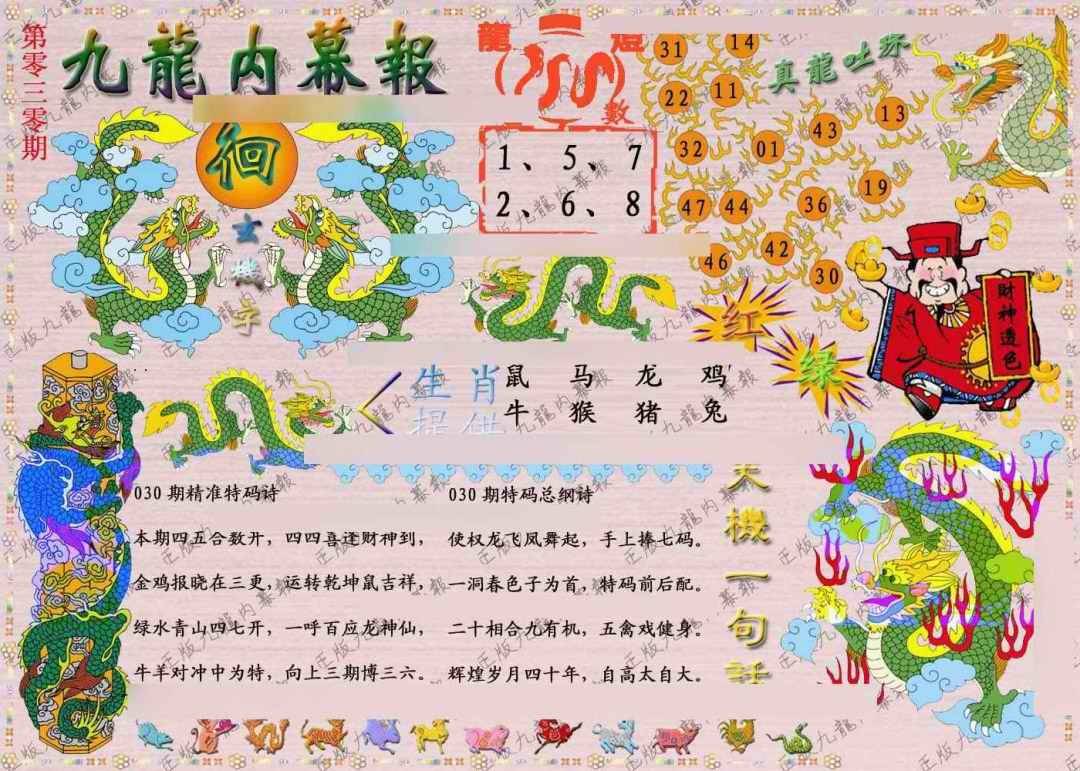 第零三零期
九龍内幕報
徊
玄
機
字
龍 燈
數
1、5、7
2、6、8
真龍吐珠
31 14
22 11
13
43
32 01
19
47 44 36
42
46 30
红
绿
財神透色
生肖
提供
鼠 马 龙 鸡
牛 猴 猪 兔
030 期精准特码诗
本期四五合数开，四四喜逢财神到，
金鸡报晓在三更，运转乾坤鼠吉祥，
绿水青山四七开，一呼百应龙神仙，
牛羊对冲中为特，向上三期博三六。
030 期特码总纲诗
使权龙飞凤舞起，手上捧七码。
一洞春色子为首，特码前后配。
二十相合九有机，五禽戏健身。
辉煌岁月四十年，自高太自大。
天機一句話
正版九龍内幕報